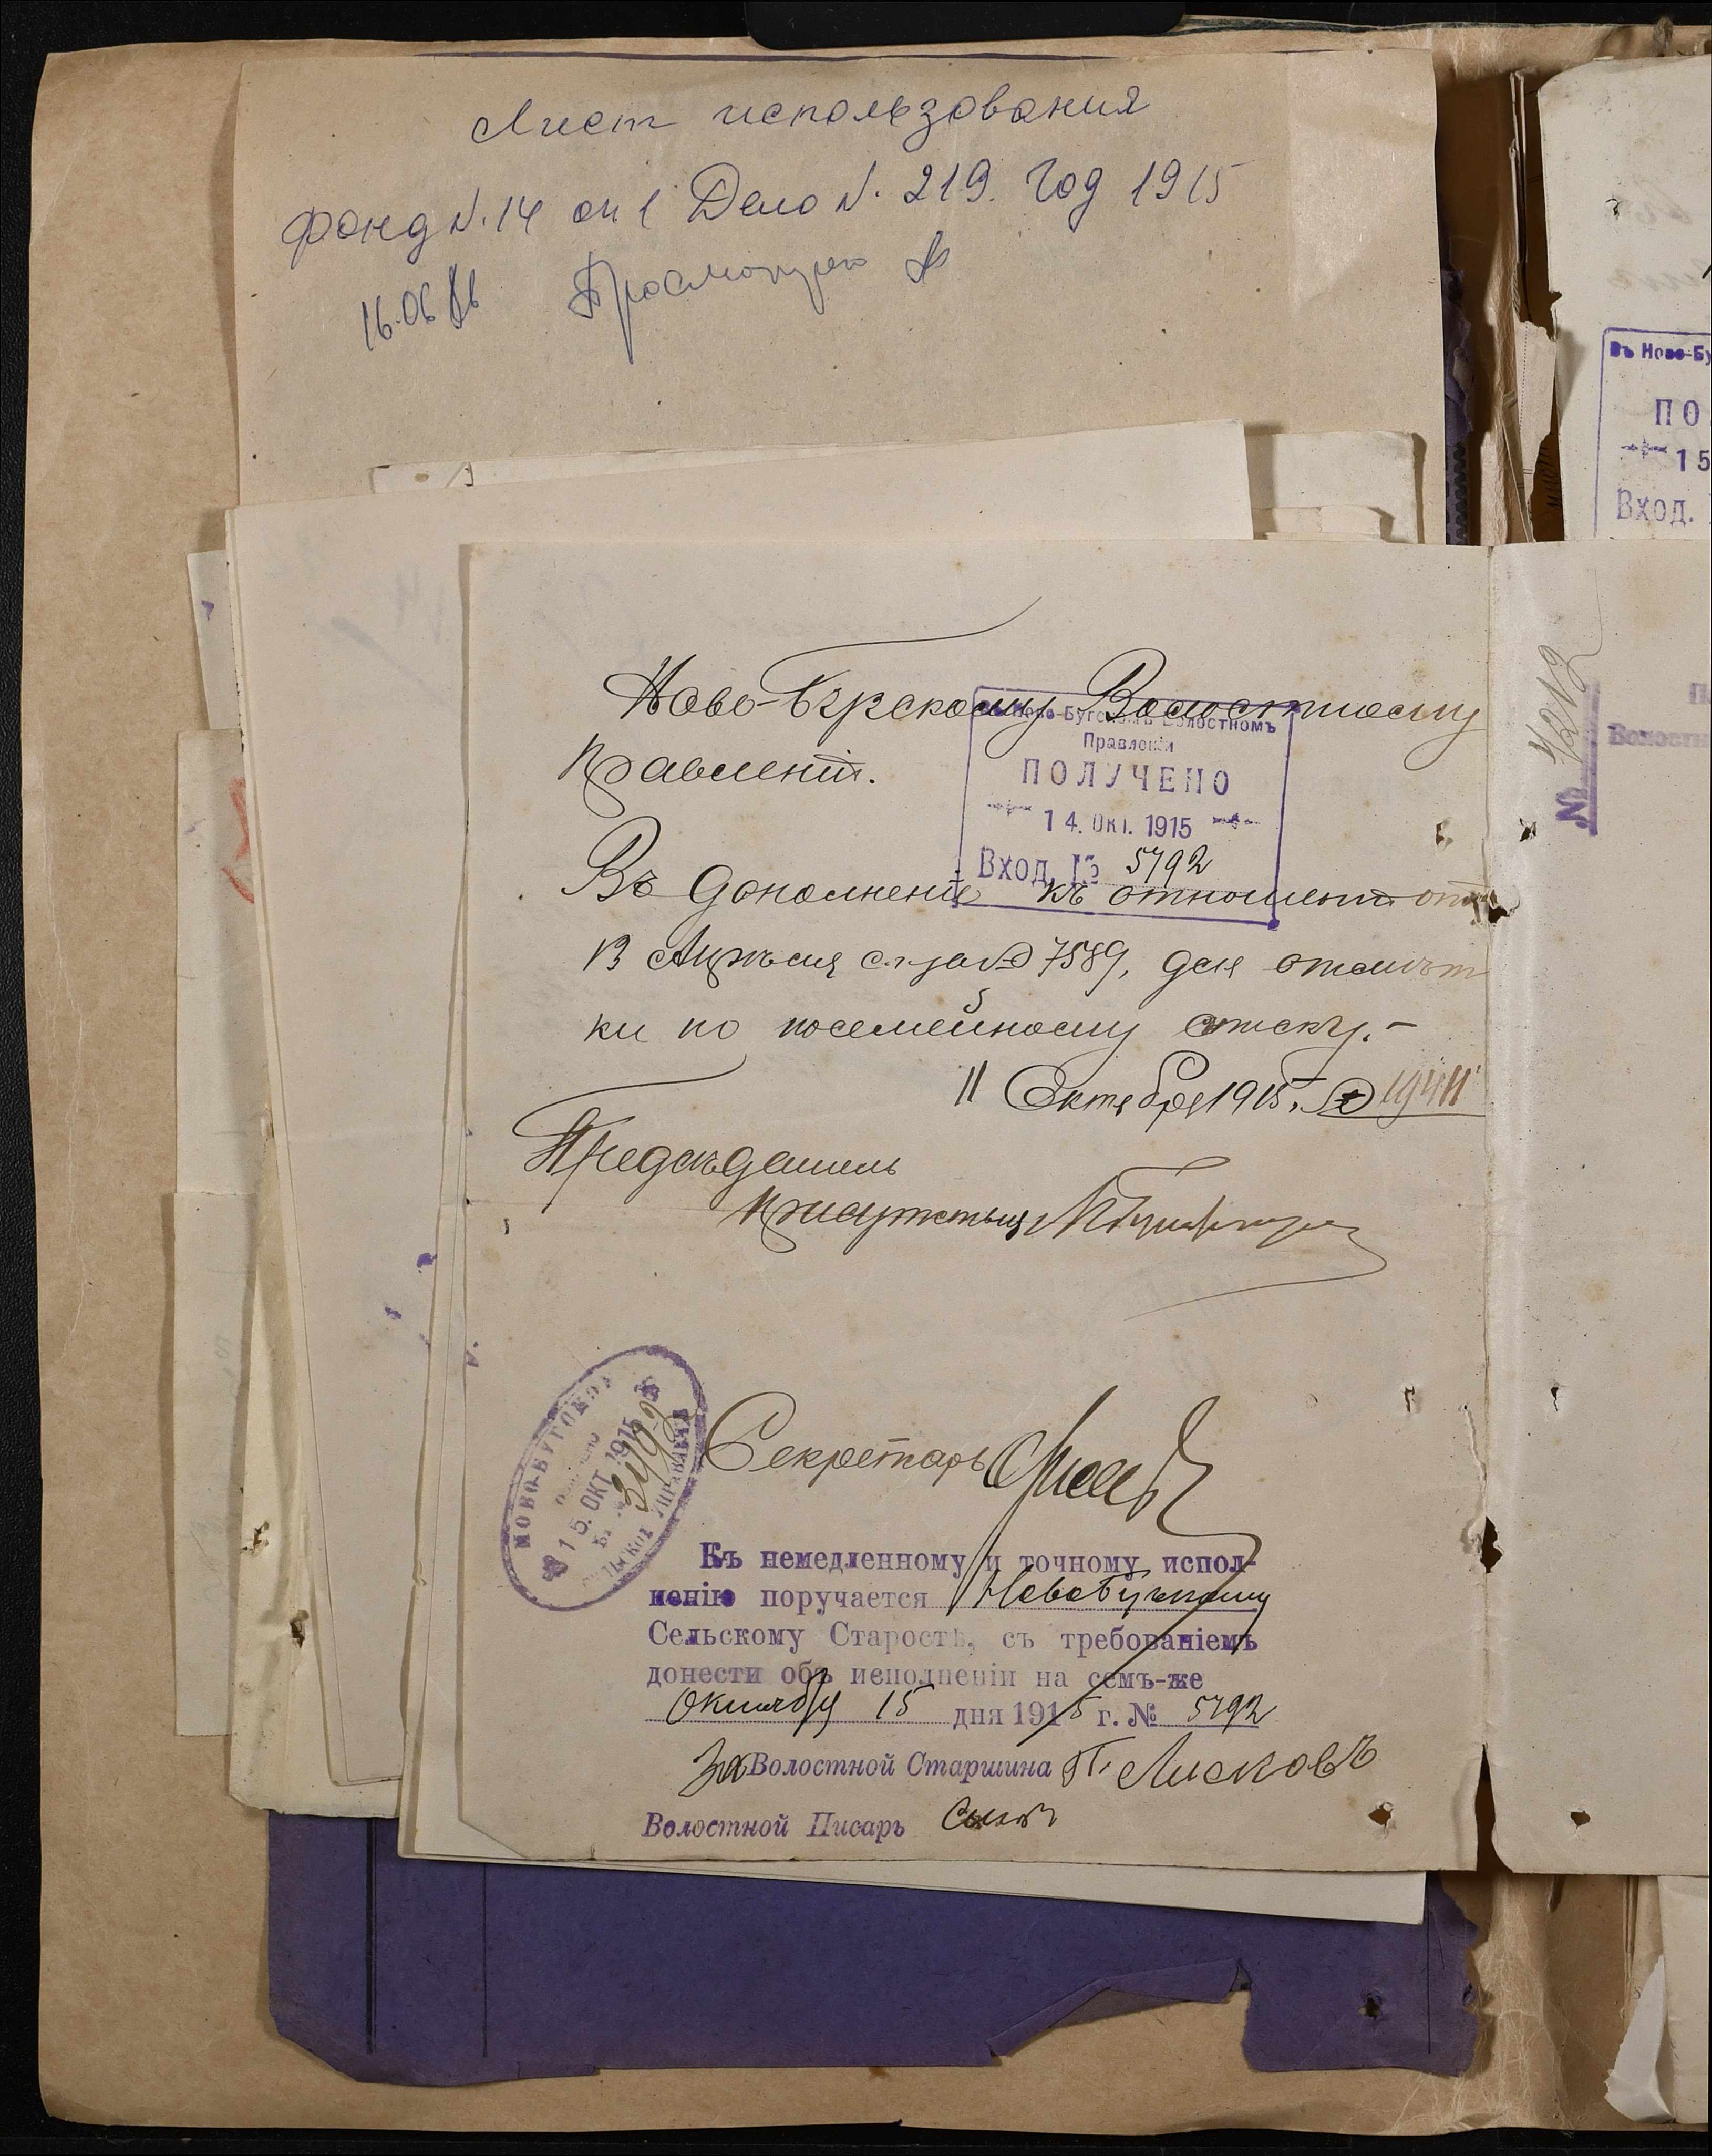 Лист использования
Фонд N. 14 оп 1 Дело N. 219. Год 1915
16.06.86 Просмотрен
Ново-Бугскому Волостному
Правленію.
Въ Ново-Бугскомъ Волостномъ
Правленіи
ПОЛУЧЕНО
14. ОКТ. 1915
Вход. № 5792
Въ дополненіе къ отношенію отъ
13 Апрѣля с.г. за № 7589, для отмѣт
ки по посемейному списку.-
11 Октября 1915 г. № 19411
Предсѣдатель
Присутствія
НОВО-БУГСКОЕ
Получено
15. ОКТ. 1915
Вх. № 3492
Секретарь
Къ немедленному и точному испол-
ненію поручается Новобугскому
Сельскому Старостѣ, съ требованіемъ
донести объ исполненіи на семъ-же
Октября 15 дня 1915 г. № 5792
За Волостной Старшина П. Лисковъ
Волостной Писарь
Въ Ново-Бу
ПО
15
Вход.
№ 4212
Волостн